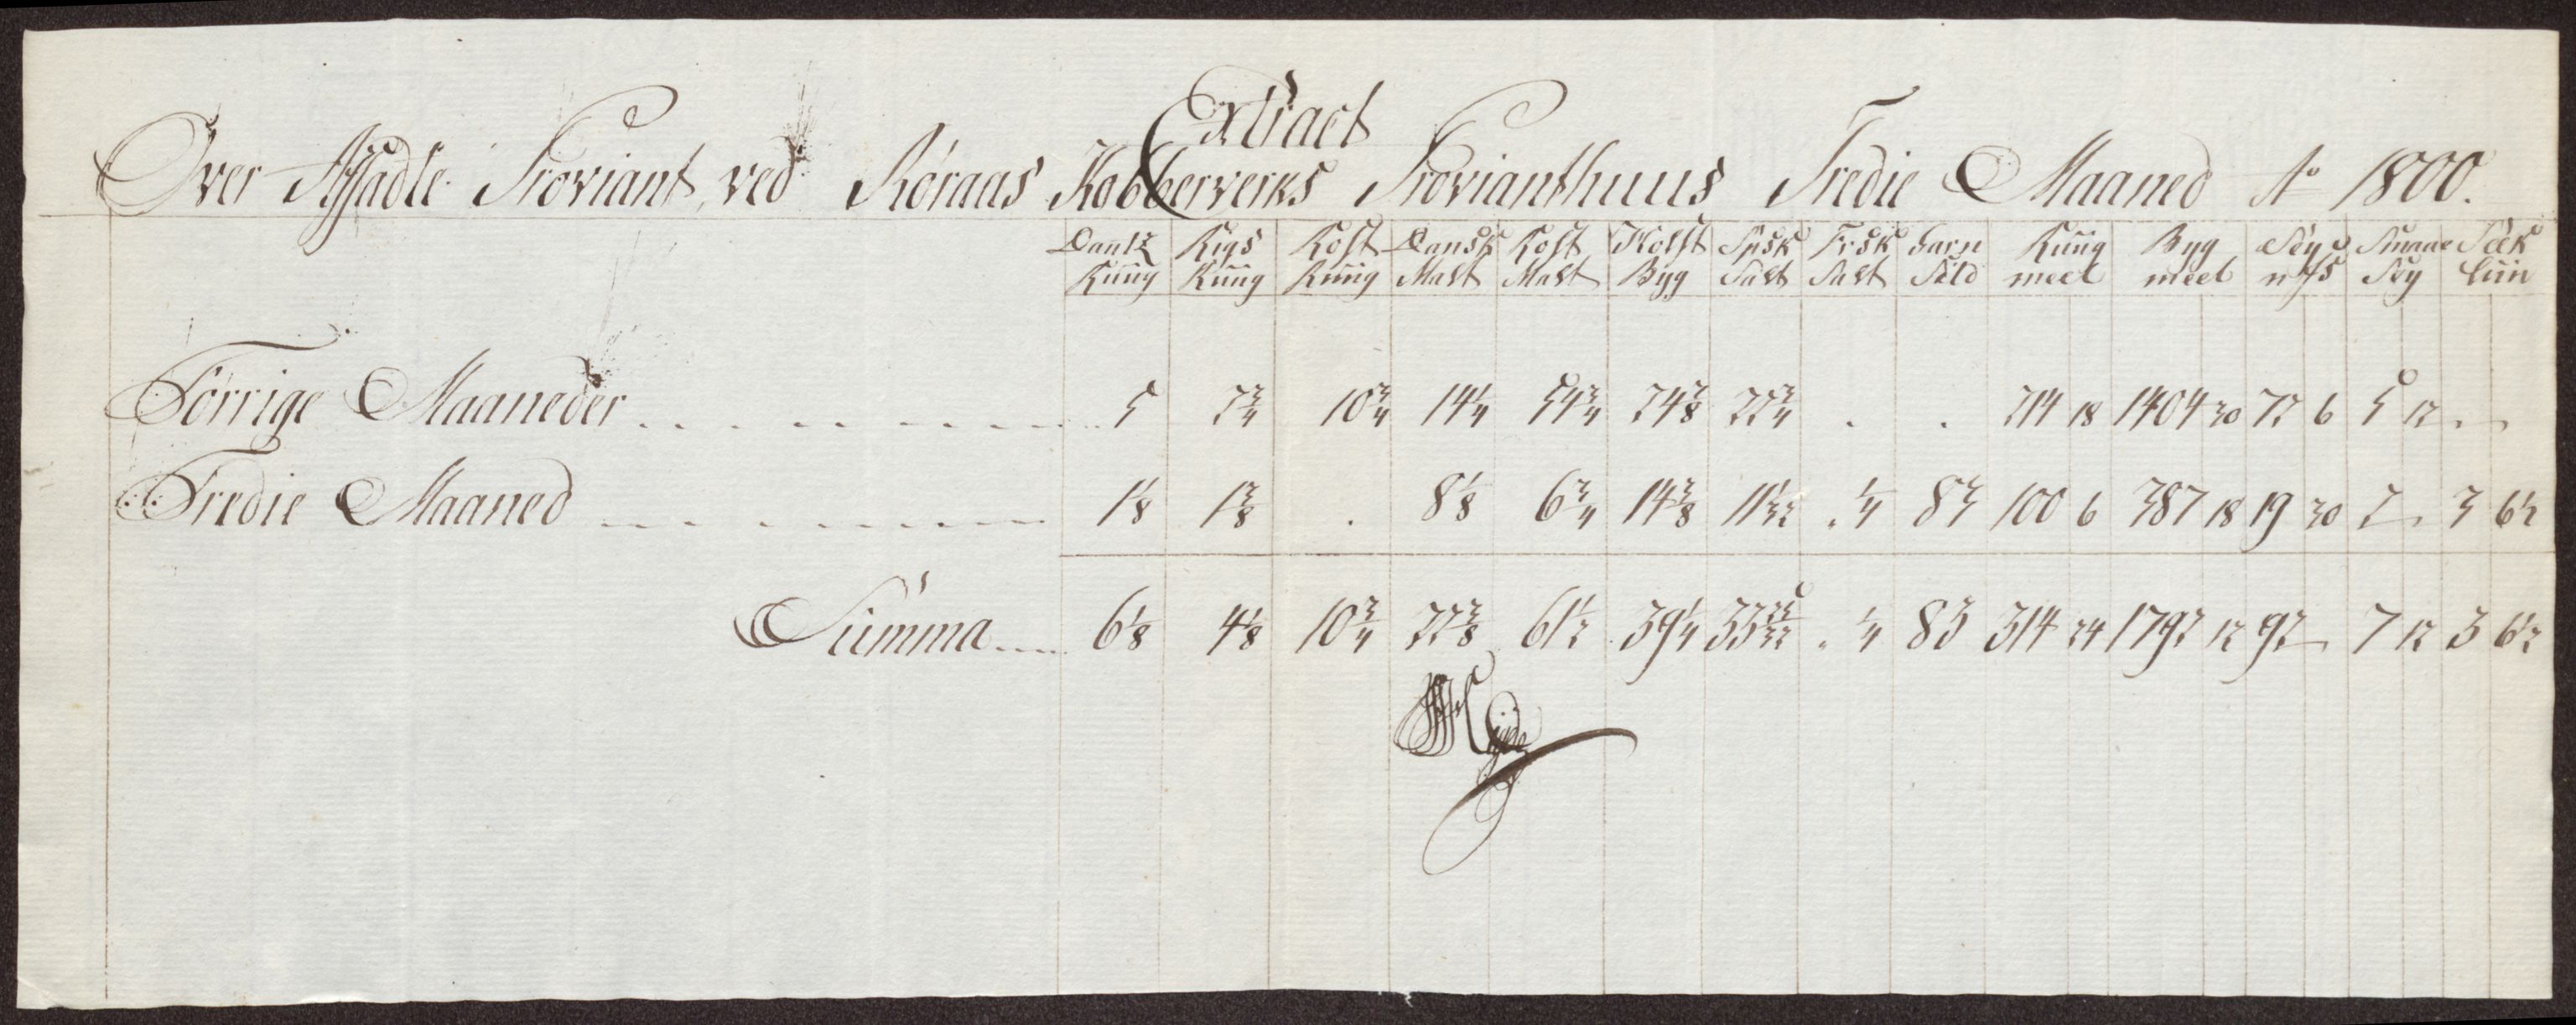 Extract
Over Afsadte Proviant ved Röraas Kobberverks Provianthuus Tredie Maaned Ao 1800.
Dantz Rüüg Rigs Rüüg Rost Rüüg Dansk Malt Rost Malt Holst Byg Spsk Salt Frsk Salt Garn Sild Rüüg meel Byg meel Smaae Sey Tör
Forrige Maaneder 5 2 3/4 10 3/4 14 1/4 54 3/4 24 7/8 22 3/4 . . 214 18 1404 30 72 6 5 12 . .
Tredie Maaned 1 1/8 1 3/8 . 8 1/8 6 3/4 14 3/8 11 1/32 . 1/4 83 100 6 387 18 19 30 2 - 3 6 1/2
Summa 6 1/8 4 1/8 10 3/4 22 3/8 61 1/2 39 1/4 33 25/32 . 1/4 83 314 24 1792 12 92 - 7 12 3 6 1/2